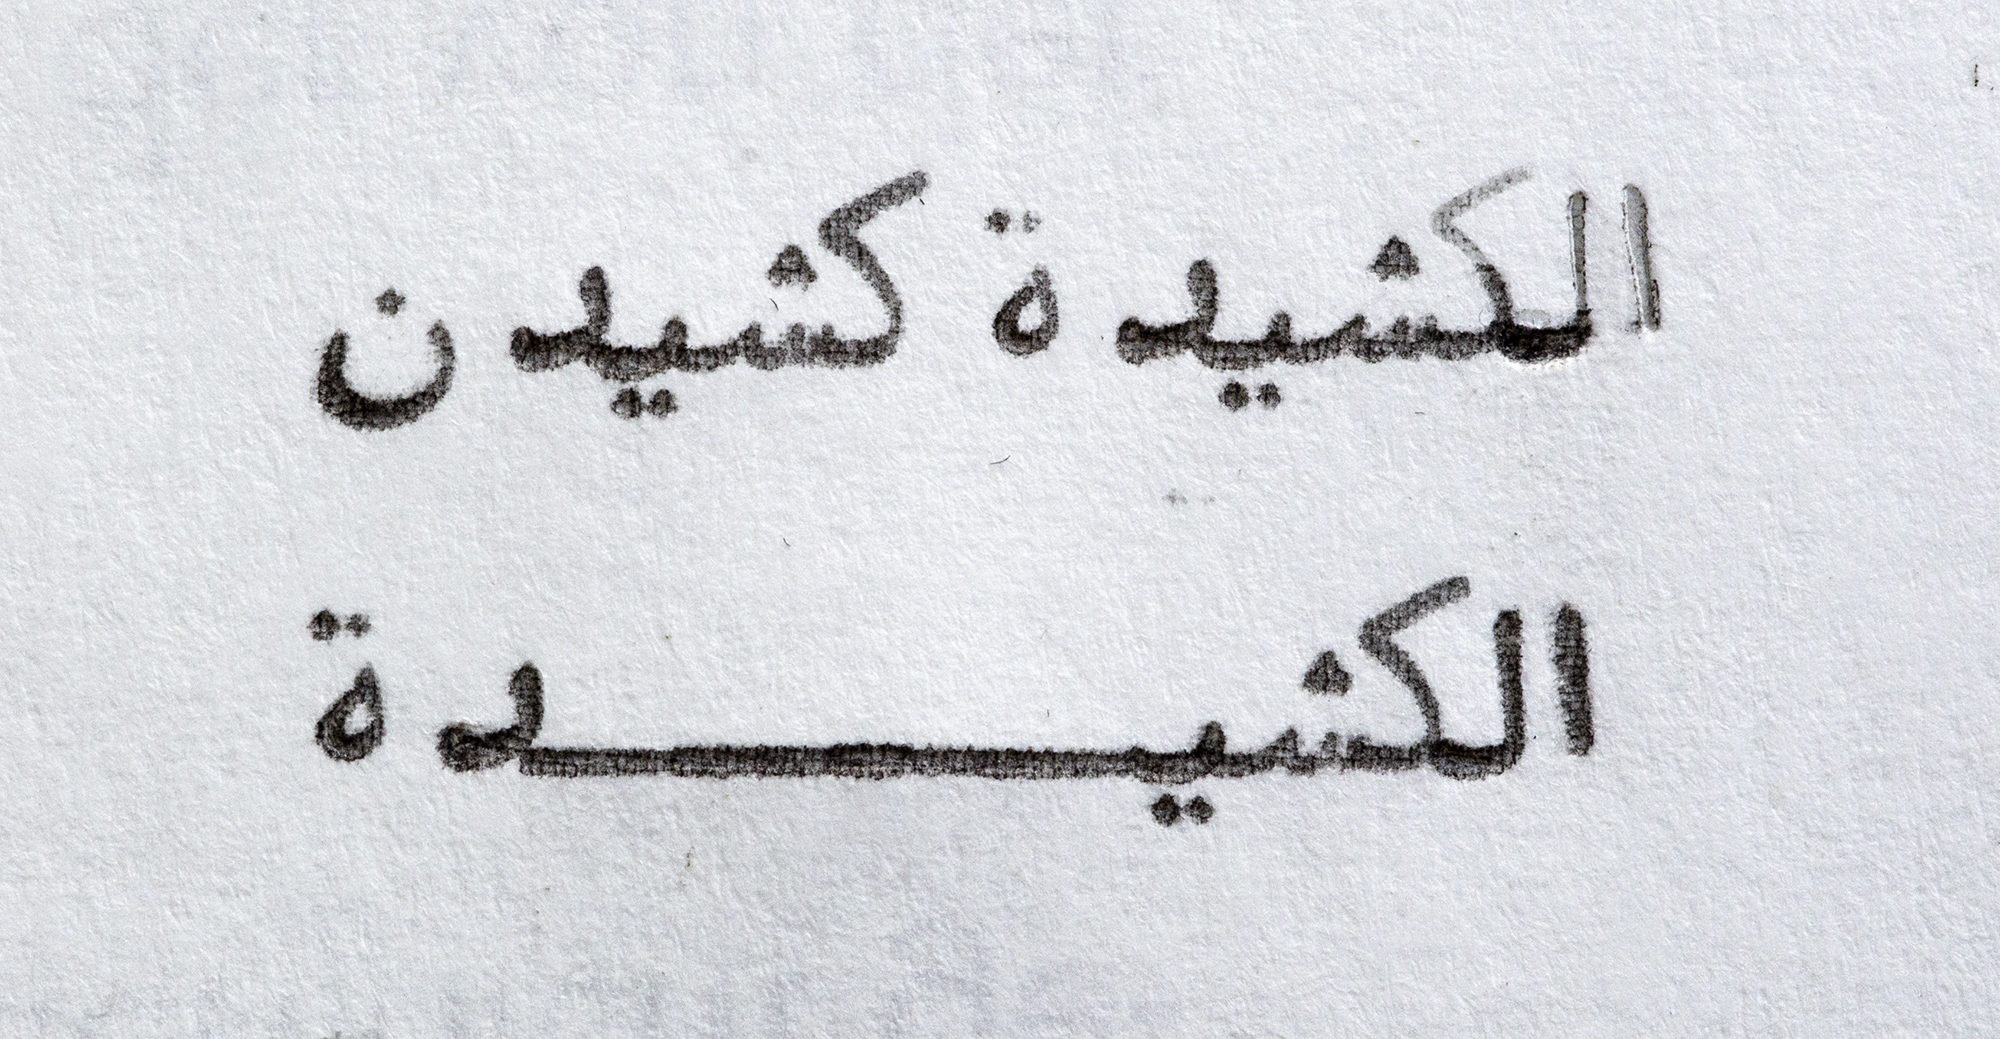 الكشيدة كشيدن
الكشيـــــدة